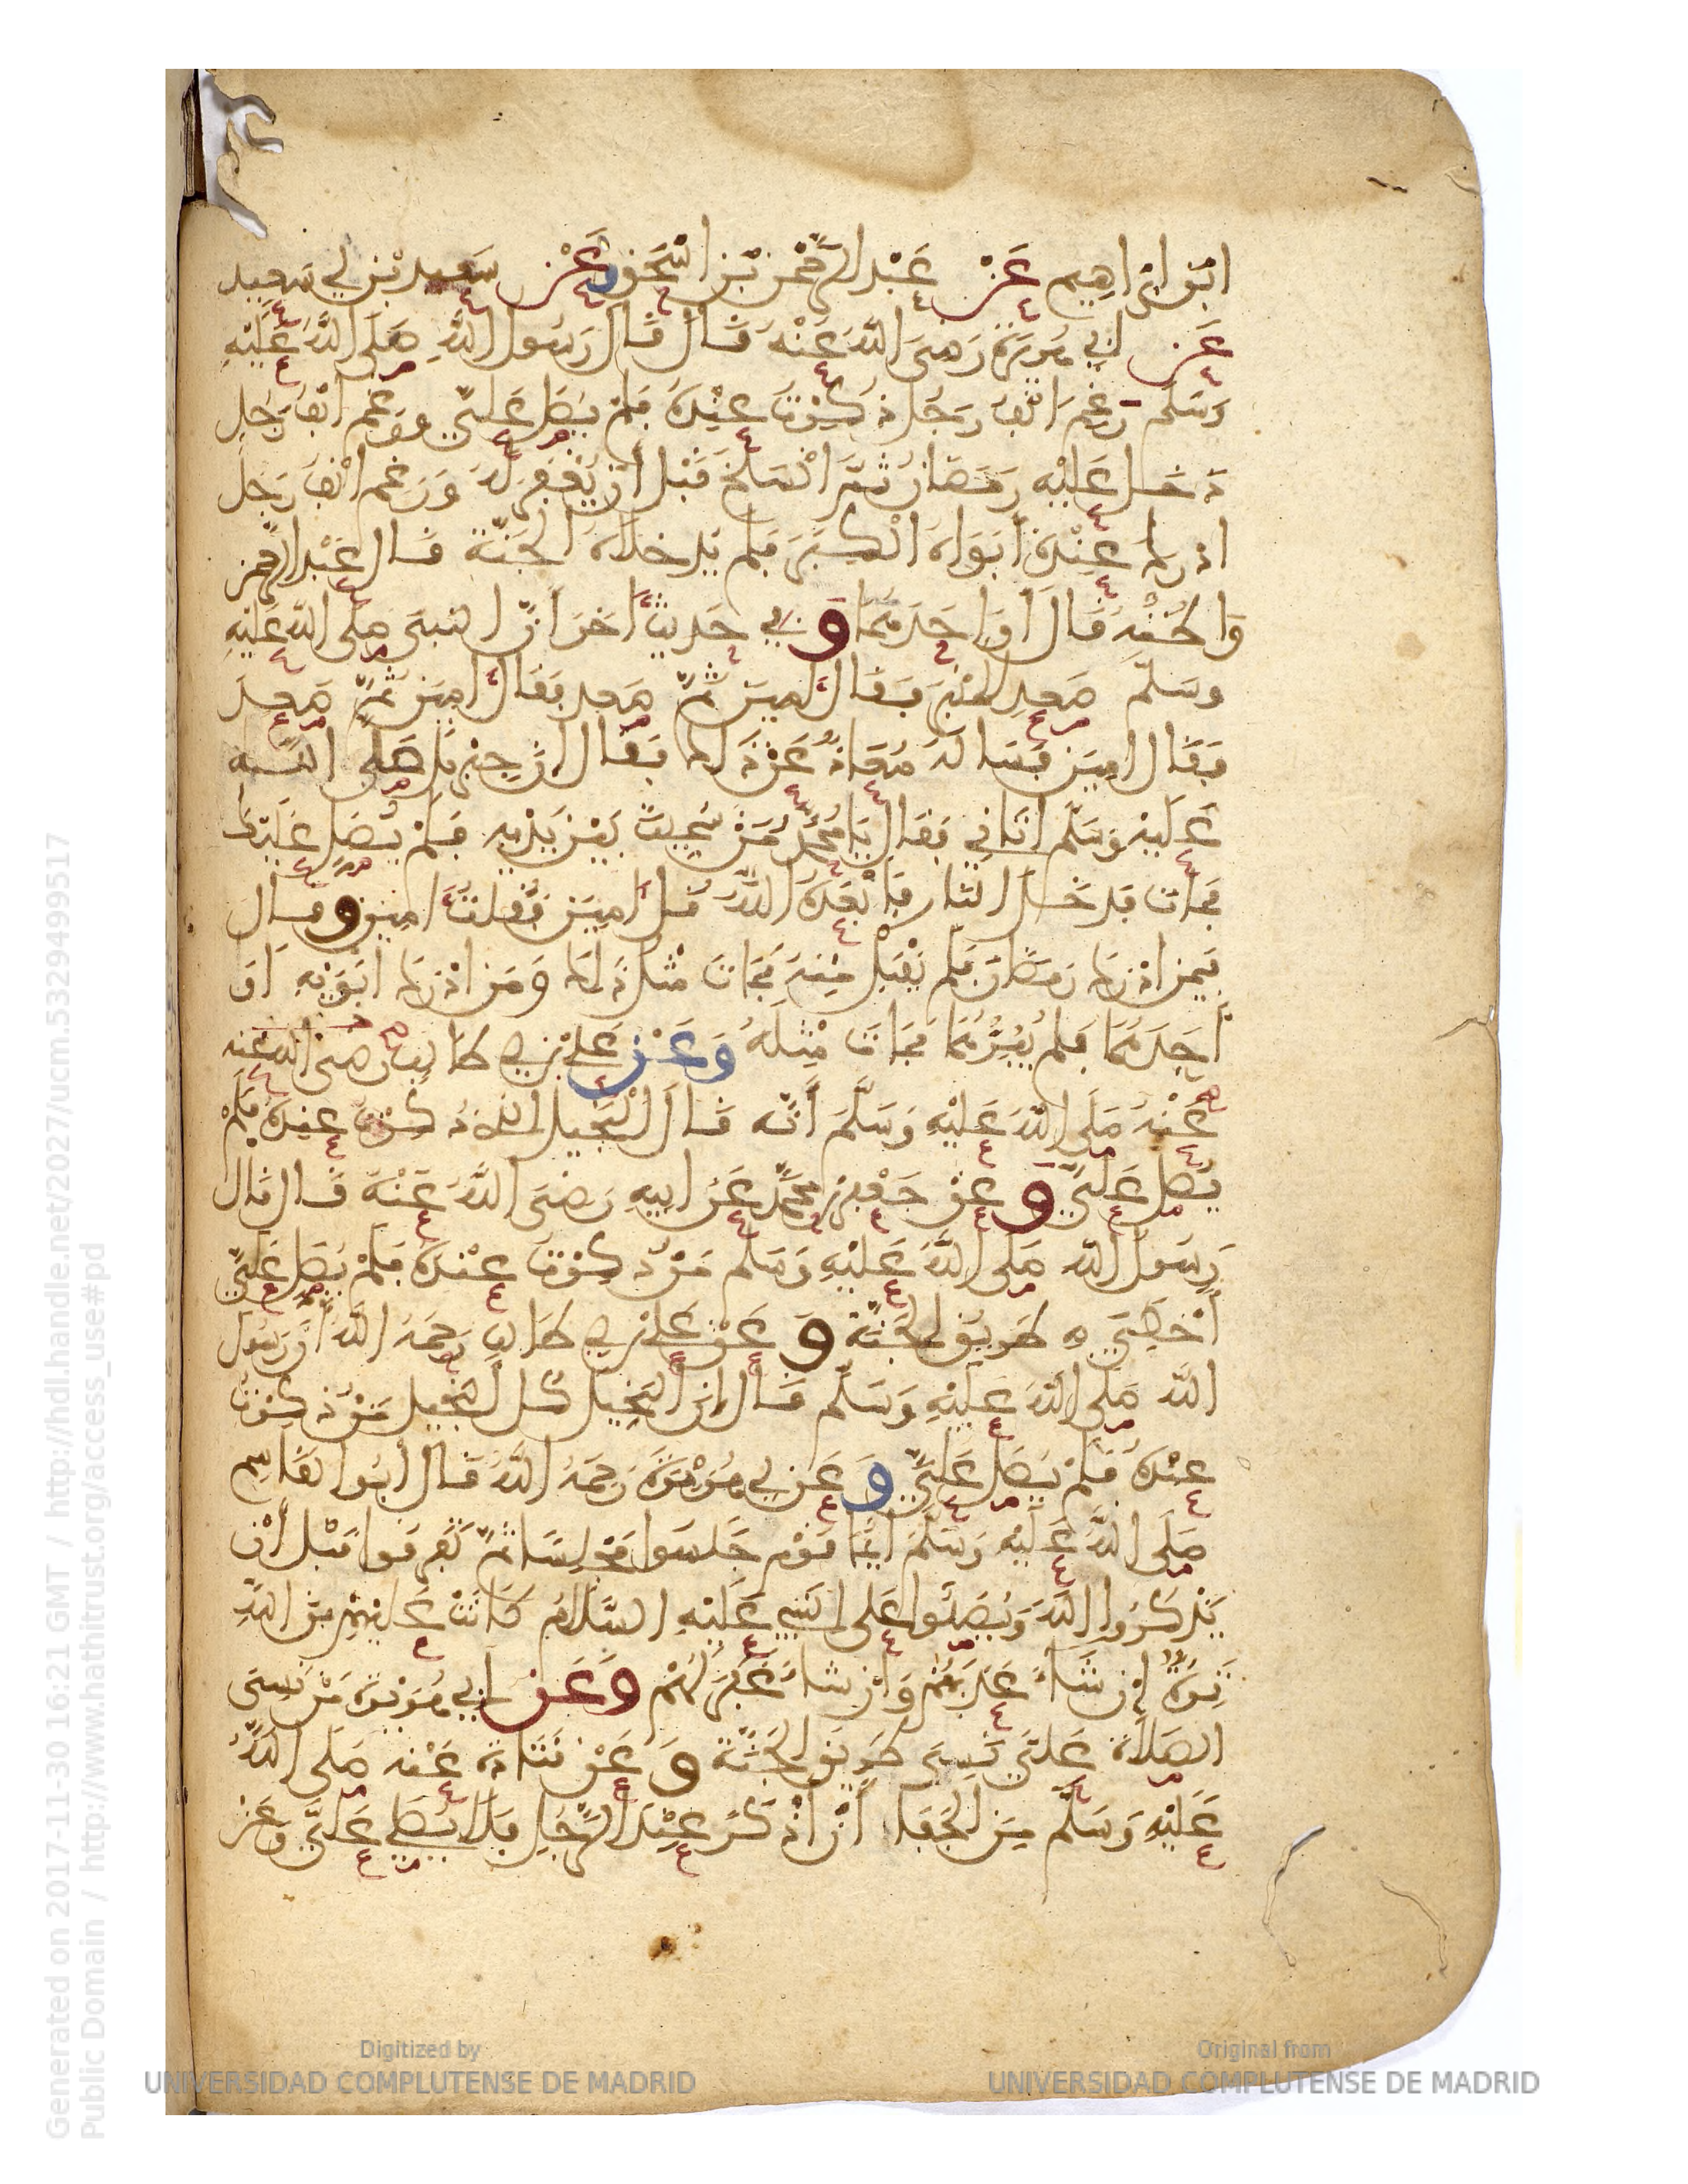 ابن ابراهيم عن عبد الرحمن بن اسحق عن سعيد بن ابي سعيد
عن ابي هريرة رضي الله عنه قال قال رسول الله صلى الله عليه
وسلم رغم انف رجل ذكرت عنده فلم يصل علي ورغم انف رجل
دخل عليه رمضان ثم انسلخ قبل أن يغفر له ورغم انف رجل
ادرك عنده أبواه الكبر فلم يدخلاه الجنة قال عبد الرحمن
واظنه قال أو احدهما و في حديث اخر أن النبي صلى الله عليه
وسلم صعد المنبر فقال امين ثم صعد فقال امين ثم صعد
فقال امين فساله معاذ عن ذلك فقال ان جبريل صلى الله
عليه وسلم اتاني فقال يا محمد من سميت بين يديه فلم يصل عليك
فمات فدخل النار فابعده الله قل امين فقلت امين و قال
فيمن ادرك رمضان فلم يقبل منه فمات مثل ذلك ومن ادرك ابويه او
أحدهما فلم يبرهما فمات مثله وعن علي بن ابي طالب رضي الله عنه
عنه صلى الله عليه وسلم أنه قال البخيل الذي ذكرت عنده فلم
يصل علي و عن جعفر بن محمد عن ابيه رضي الله عنه قال قال
رسول الله صلى الله عليه وسلم من ذكرت عنده فلم يصل علي
أخطي به طريق الجنة و عن علي بن ابي طالب رحمه الله أن رسول
الله صلى الله عليه وسلم قال إن البخيل كل البخيل من ذكرت
عنده فلم يصل علي و عن ابي هريرة رحمه الله قال أبو القاسم
صلى الله عليه وسلم ايما قوم جلسوا مجلسا ثم تفرقوا قبل أن
يذكروا الله ويصلوا على النبي عليه السلام كانت عليهم من الله
ترة إن شاء عذبهم وان شاء غفر لهم وعن ابي هريرة من نسي
الصلاة علي نسي طريق الجنة و عن قتادة عنه صلى الله
عليه وسلم من الجفاء أن أذكر عند الرجل فلا يصلي علي وعن
Generated on 2017-11-30 16:21 GMT / http://hdl.handle.net/2027/ucm.5329499517
Public Domain / http://www.hathitrust.org/access_use#pd
Digitized by
UNIVERSIDAD COMPLUTENSE DE MADRID
Original from
UNIVERSIDAD COMPLUTENSE DE MADRID